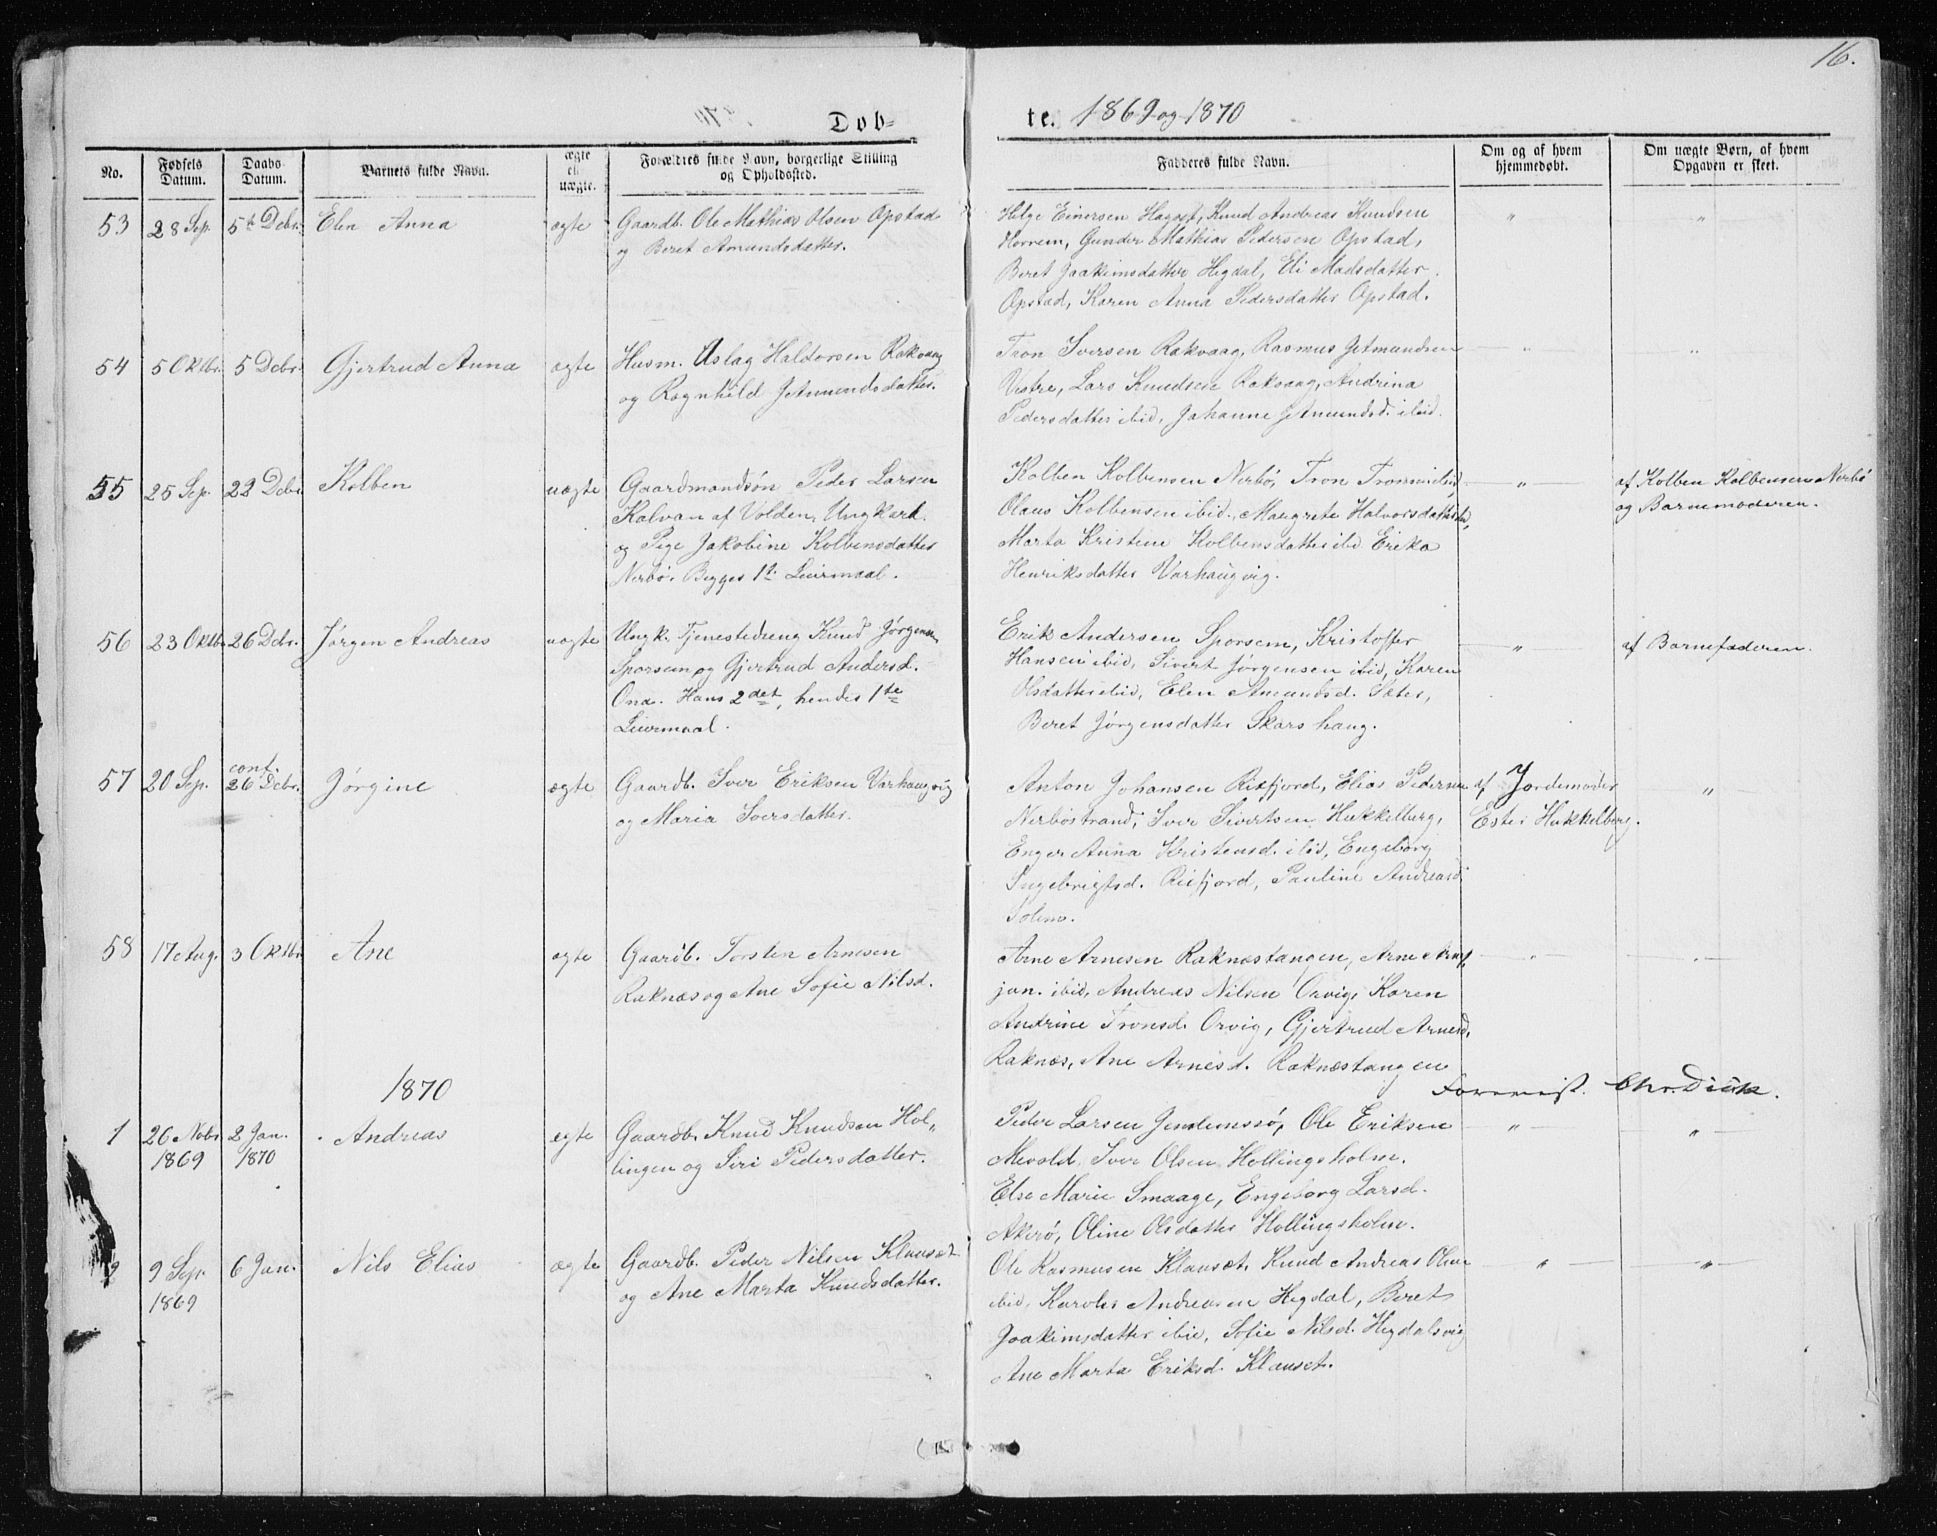 16.
Døb=
te. 1869 og 1870
No.
Fødsels Datum.
Daabs Datum.
Barnets fulde Navn.
ægte el. uægte.
Forældres fulde Navn, borgerlige Stilling og Opholdssted.
Fadderes fulde Navn.
Om og af hvem hjemmedøbt.
Om uægte Børn, af hvem Opgaven er skeet.
53 28 Sep. 5te Debr. Elen Anna ægte Gaardb. Ole Mathias Olsen Opstad
og Beret Amundsdatter.
Helge Einersen Hagset, Knud Andreas Knudsen
Horrem, Gunder Mathias Pedersen Opstad,
Beret Joakimsdatter Hegdal, Eli Madsdatter
Opstad, Karen Anna Pedersdatter Opstad.
" "
54 5 Oktbr. 5 Debr. Gjertrud Anna ægte Husm. Aslag Haldorsen Rakvaag
og Ragnhild Jetmundsdatter.
Tron Iversen Rakvaag, Rasmus Jetmundsen
Vestre, Lars Knudsen Rakvaag, Andrina
Pedersdatter ibid, Johanne Jetmundsd. ibid.
" "
55 25 Sep. 22 Debr. Kolben uægte Gaardmandsøn Peder Larsen
Kalvan af Volden, Ungkarl
og Pige Jakobine Kolbensdatter
Nerbø. Begges 1te Leiermaal.
Kolben Kolbensen Nerbø, Tron Tronsen ibid,
Olaus Kolbensen ibid, Margrete Halvorsdatter ibd,
Marta Kristine Kolbensdatter ibid Erika
Henriksdatter Varhaugvig.
"
af Kolben Kolbensen Nerbø
og Barnemoderen.
56 23 Oktbr. 26 Debr. Jørgen Andreas uægte Ungk. Tjenestedreng Knud Jørgensen
Sporsem og Gjertrud Andersd.
Ona. Hans 2det, hendes 1te
Leiermaal.
Erik Andersen Sporsem, Kristoffer
Hansen ibid, Sivert Jørgensen ibid, Karen
Olsdatter ibid, Elen Amundsd. Sæter,
Beret Jørgensdatter Skarshaug.
"
af Barnefaderen.
57 20 Sep. conf. 26 Debr. Jørgine ægte Gaardb. Iver Eriksen Varhaugvig
og Maria Iversdatter.
Anton Johansen Risfjord, Elias Pedersen
Nerbøstrand, Iver Sivertsen Hukkelberg,
Enger Anna Kristensd. ibid, Engeborg
Ingebrigtsd. Risfjord, Pauline Andreasd.
Solem.
af Jordemoder
Ester Hukkelberg.
"
58 17 Aug. 3 Oktbr. Ane ægte Gaardb. Torsten Arnesen
Raknæs og Ane Sofie Nilsd.
Arne Arnesen Raknæstangen, Arne
jun. ibid, Andreas Nilsen Orvig, Karen
Andrine Tronsd. Orvig, Gjertrud Arnesd.
Raknæs, Ane Arnesd. Raknæstangen
" "
Forevist. Chr. Dick.
1870
1 26 Nobr. 1869 2 Jan. 1870 Andreas ægte Gaardb. Knud Knudsen Hol„
lingen og Siri Pedersdatter.
Peder Larsen Jendemssø, Ole Eriksen
Mevold, Iver Olsen Hollingsholm.
Else Marie Smaage, Engeborg Larsd.
Akerø, Oline Olsdatter Hollingsholm.
" "
2 9 Sep. 1869 6 Jan. Nils Elias ægte Gaardb. Peder Nilsen Klauset
og Ane Marta Knudsdatter.
Ole Rasmusen Klauset, Knud Andreas Olsen
ibid, Karoles Andreasen Hegdal, Beret
Joakimsdatter ibid, Sofie Nilsd. Hegdalsvig
Ane Marta Eriksd. Klauset.
" "